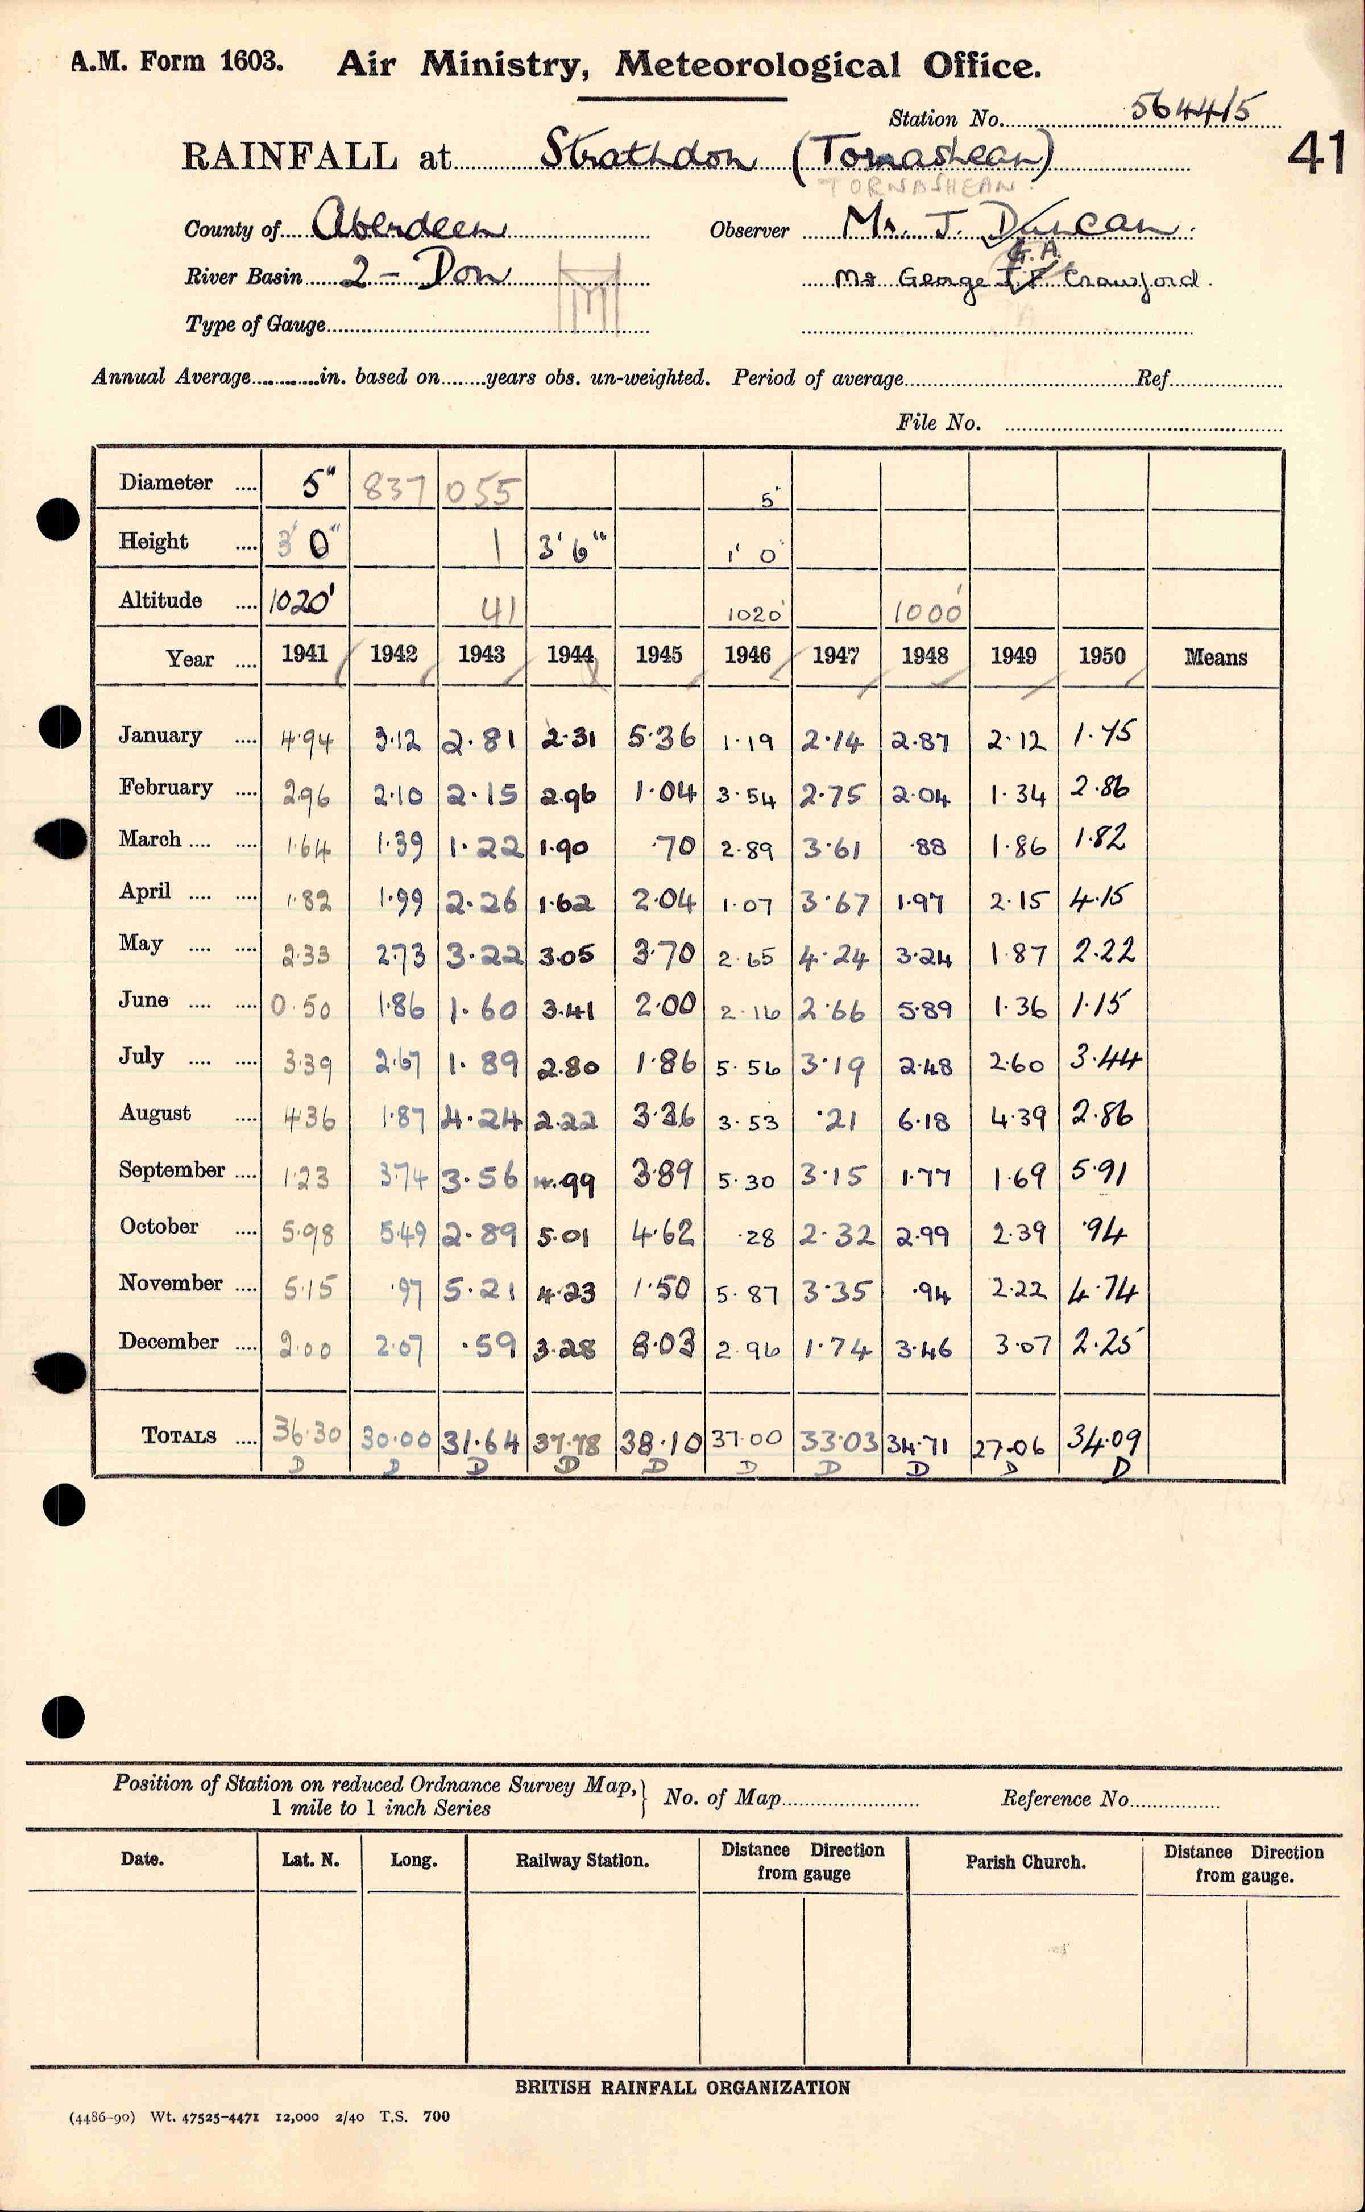 A.M. Form 1603. Air Ministry, Meteorological Office.
Station No. 5644/5
41
RAINFALL at Strathdon (Tornashean)
TORNASHEAN
County of Aberdeen Observer Mr. J. Duncan
G.A
River Basin 2 - Don Mr George Crawford
Type of Gauge
Annual Average in. based on years obs. un-weighted. Period of average Ref
File No.
Diameter 5" 837 055 5"
Height 3' 0" 1 3' 6" 1' 0"
Altitude 1020' 41 1020' 1000'
Year 1941 1942 1943 1944 1945 1946 1947 1948 1949 1950 Means
January 4.94 3.12 2.81 2.31 5.36 1.19 2.14 2.87 2.12 1.75
February 2.96 2.10 2.15 2.96 1.04 3.54 2.75 2.04 1.34 2.86
March 1.64 1.39 1.22 1.90 .70 2.89 3.61 .88 1.86 1.82
April 1.82 1.99 2.26 1.62 2.04 1.07 3.67 1.97 2.15 4.15
May 2.33 2.73 3.22 3.05 3.70 2.65 4.24 3.24 1.87 2.22
June 0.50 1.86 1.60 3.41 2.00 2.16 2.66 5.89 1.36 1.15
July 3.39 2.67 1.89 2.80 1.86 5.56 3.19 2.48 2.60 3.44
August 4.36 1.87 4.24 2.22 3.36 3.53 .21 6.18 4.39 2.86
September 1.23 3.74 3.56 4.99 3.89 5.30 3.15 1.77 1.69 5.91
October 5.98 5.49 2.89 5.01 4.62 .28 2.32 2.99 2.39 .94
November 5.15 .97 5.21 4.23 1.50 5.87 3.35 .94 2.22 4.74
December 2.00 2.07 .59 3.28 8.03 2.96 1.74 3.46 3.07 2.25
TOTALS 36.30 30.00 31.64 37.78 38.10 37.00 33.03 34.71 27.06 34.09
D D D D D D D D D D
Position of Station on reduced Ordnance Survey Map,
1 mile to 1 inch Series } No. of Map Reference No.
Date. Lat. N. Long. Railway Station. Distance Direction from gauge Parish Church. Distance Direction from gauge.
BRITISH RAINFALL ORGANIZATION
(4486-90) Wt. 47525-4471 12,000 2/40 T.S. 700